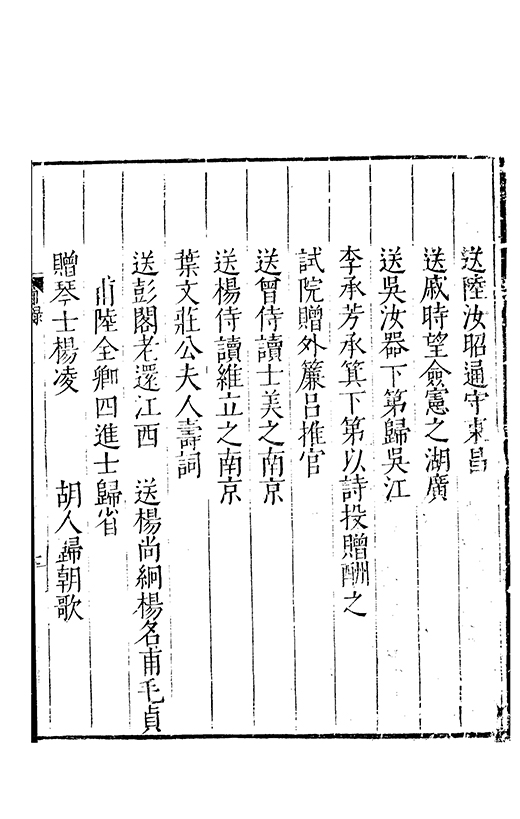 送陸汝昭通守東昌
送戚時望僉憲之湖廣
送吳汝器下第歸吳江
李承芳承箕下第以詩投贈酬之
試院贈外簾呂推官
送曾侍讀士美之南京
送楊侍讀維立之南京
葉文莊公夫人壽詞
送彭閣老還江西　送楊尚絅楊名甫毛貞
甫陸全卿四進士歸省
贈琴士楊凌　胡人歸朝歌
目錄